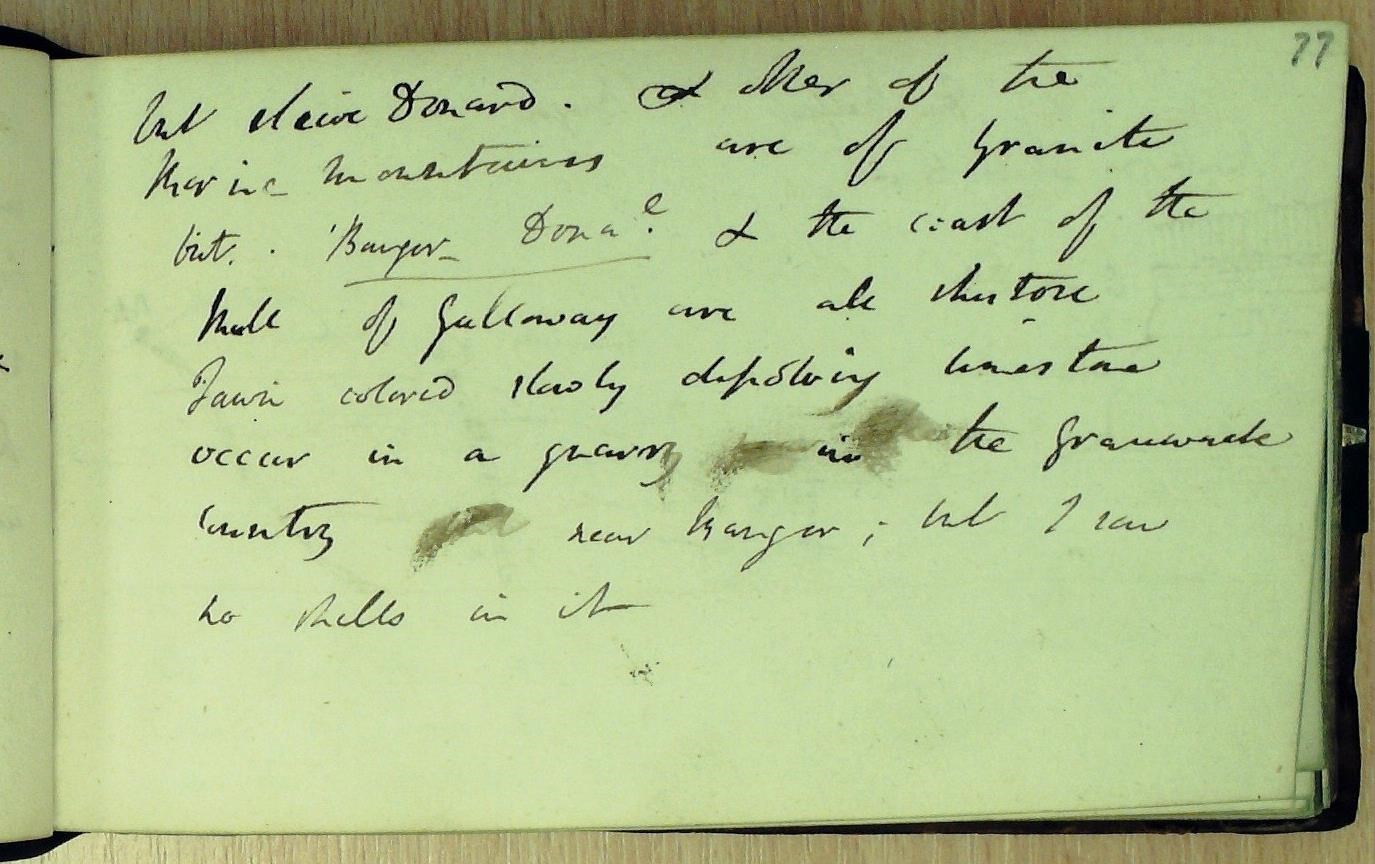 77
but sleive Donard. & other of the
Morne mountains are of Granite
but. Bangor Dona.e & the coast of the
Mull of Galloway are all
Fawn colored slowly dissolving limestone
occur in a quarry in the Grauwacke
country near bangor; but I saw
no shells in it